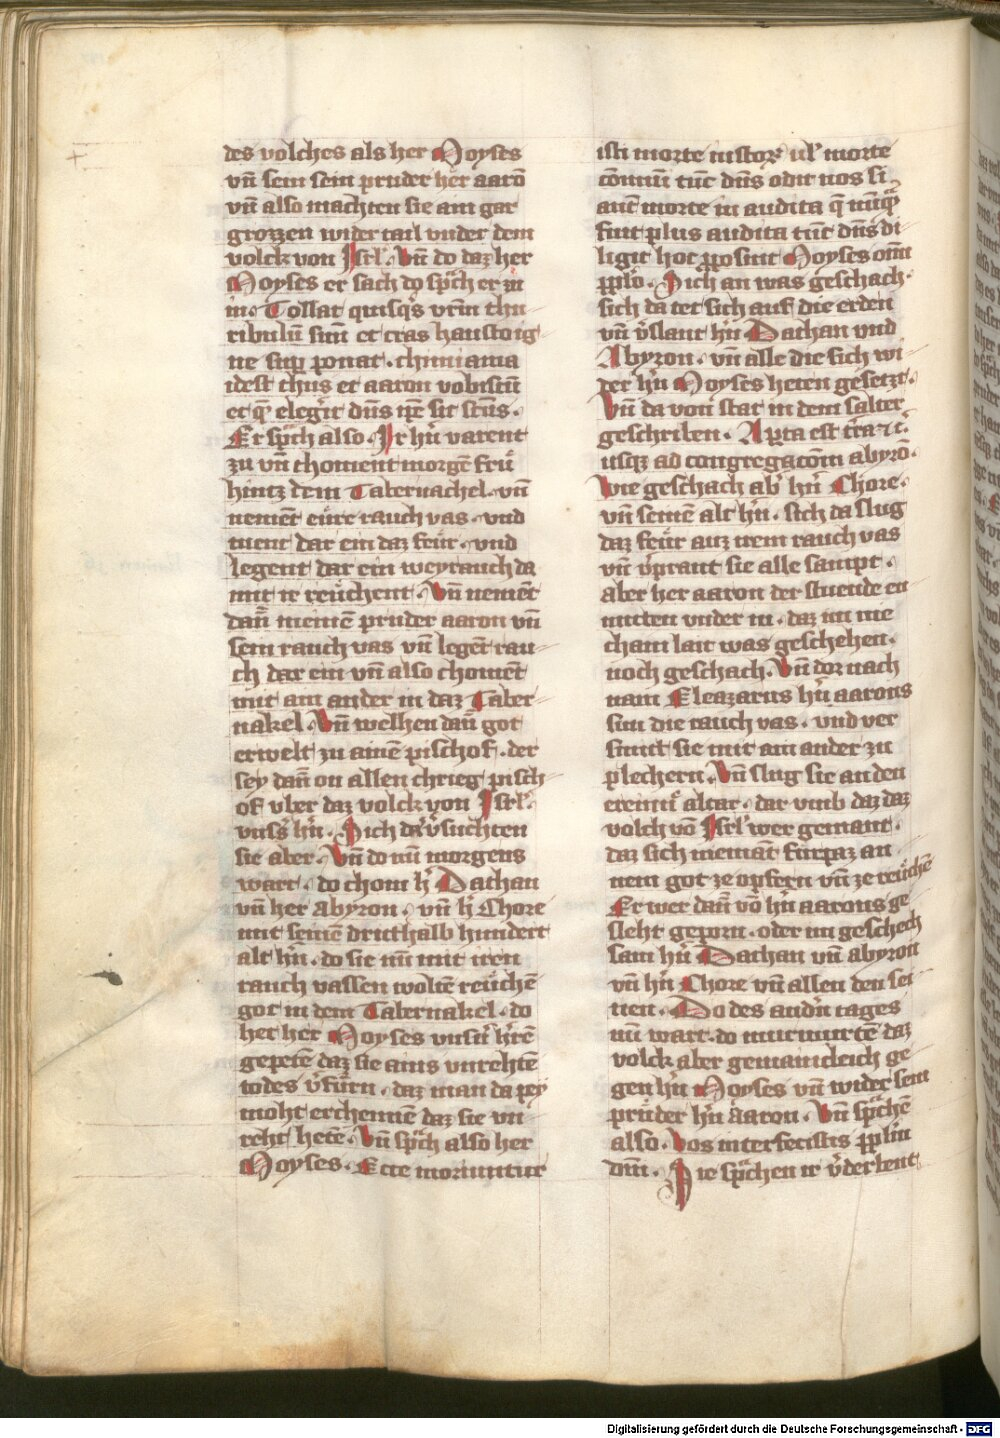 des volches als her Moyses
vn̄ sein sein pruder her aarō
vn̄ also machten sie ain gar
grozzen wider tail vnder dem
volck von Isrl'. Vn̄ do daz her
Moyses er sach do sp̄ch er zü
in. Tollat quisq̄s vr̄m thu-
ribulū suū et cras haustoig
ne sup ponat. thimiama
idest thus et aaron vobiscū
et q̄ eleg'it dn̄s ip̄e sit sctūs.
Er sp̄ch also. Ir h'n varent
zu vn̄ choment morgē frů
hintz dem Tabernachel. vn̄
nemēt eüre rauch vas. vnd
tuent dar ein daz feür. vnd
legent dar ein weyrauch da
mit ir reüchent. Vn̄ nemēt
dañ meinē pruder aaron vn̄
sein rauch vas vn̄ legēt rau-
ch dar ein vn̄ also chomēt
mit ain ander in daz Taber-
nakel. Vn̄ welhen dañ got
erwelt zu ainē pischof. der
sey dañ on allen chrieg pisch-
of vber daz volck von Isrl'.
vnss' h'n. Sich da v'suchten
sie aber. Vn̄ do nū morgens
wart. do chom h' Dathan
vn̄ her Abyron. vn̄ h' Chore
mit seinē drithalb hundert
alt h'n. do sie nū mit iren
rauch vassen woltē reüchē
got in dem Tabernakel. do
het her Moyses vnsn̄ h'rē
gepetē daz sie ains vnrehtē
todes v'fürn. daz man da pey
moht erchennē daz sie vn-
reht hetē. Vn̄ sp̄ch also her
Moyses. Ecce moriuntur
isti morte iustor' ul' morte
cōmuni tūc dn̄s odit nos si
autē morte in audita q̄ nūq̄
fuit plus audita tūc dn̄s di-
ligit hoc pposuit Moyses om̄i
pplo. Sich an was geschach.
sich da tet sich auf die erden
vn̄ v'slant h'n Dathan vnd
Abyron. vn̄ alle die sich wi-
der h'n Moyses heten gesetzt.
Vn̄ da von stat in dem salter
geschriben. Apta est t'ra &c'
usq̄z ad congregacōm abyrō.
Wie geschach ab' h'n Chore.
vn̄ seinē alt h'n. sich da slug
daz feür auz irem rauch vas
vn̄ v'prant sie alle sampt.
Aber her aaron der stuende en
mitten vnder in. daz im nie
chain lait was geschehen.
noch geschach. Vn̄ dor nach
nam Eleazarus h'n aarons
sun die rauch vas. vnd ver
smitt sie mit ain ander zu
plechern. Vn̄ slug sie an den
ereinn' altar. dar vmb daz daz
volch vō Isrl' wer gemant.
daz sich niemāt fürpaz an
nem got ze opfern vn̄ ze reüchē
Er wer dañ vō h'n aarons ge
sleht geporn. oder im geschech
sam h'n Dathan vn̄ abyron
vn̄ h'n Chore vn̄ allen den sei
nen. Do des andn̄ tages
nū wart. do murmurtē daz
volck aber gemainchleich ge
gen h'n Moyses vn̄ wider sein
prüder h'n aaron. Vn̄ sp̄chē
also. Vos interfecistis pplm̄
dm̄. Sie sp̄chen ir v'derbent
Digitalisierung gefördert durch die Deutsche Forschungsgemeinschaft - DFG